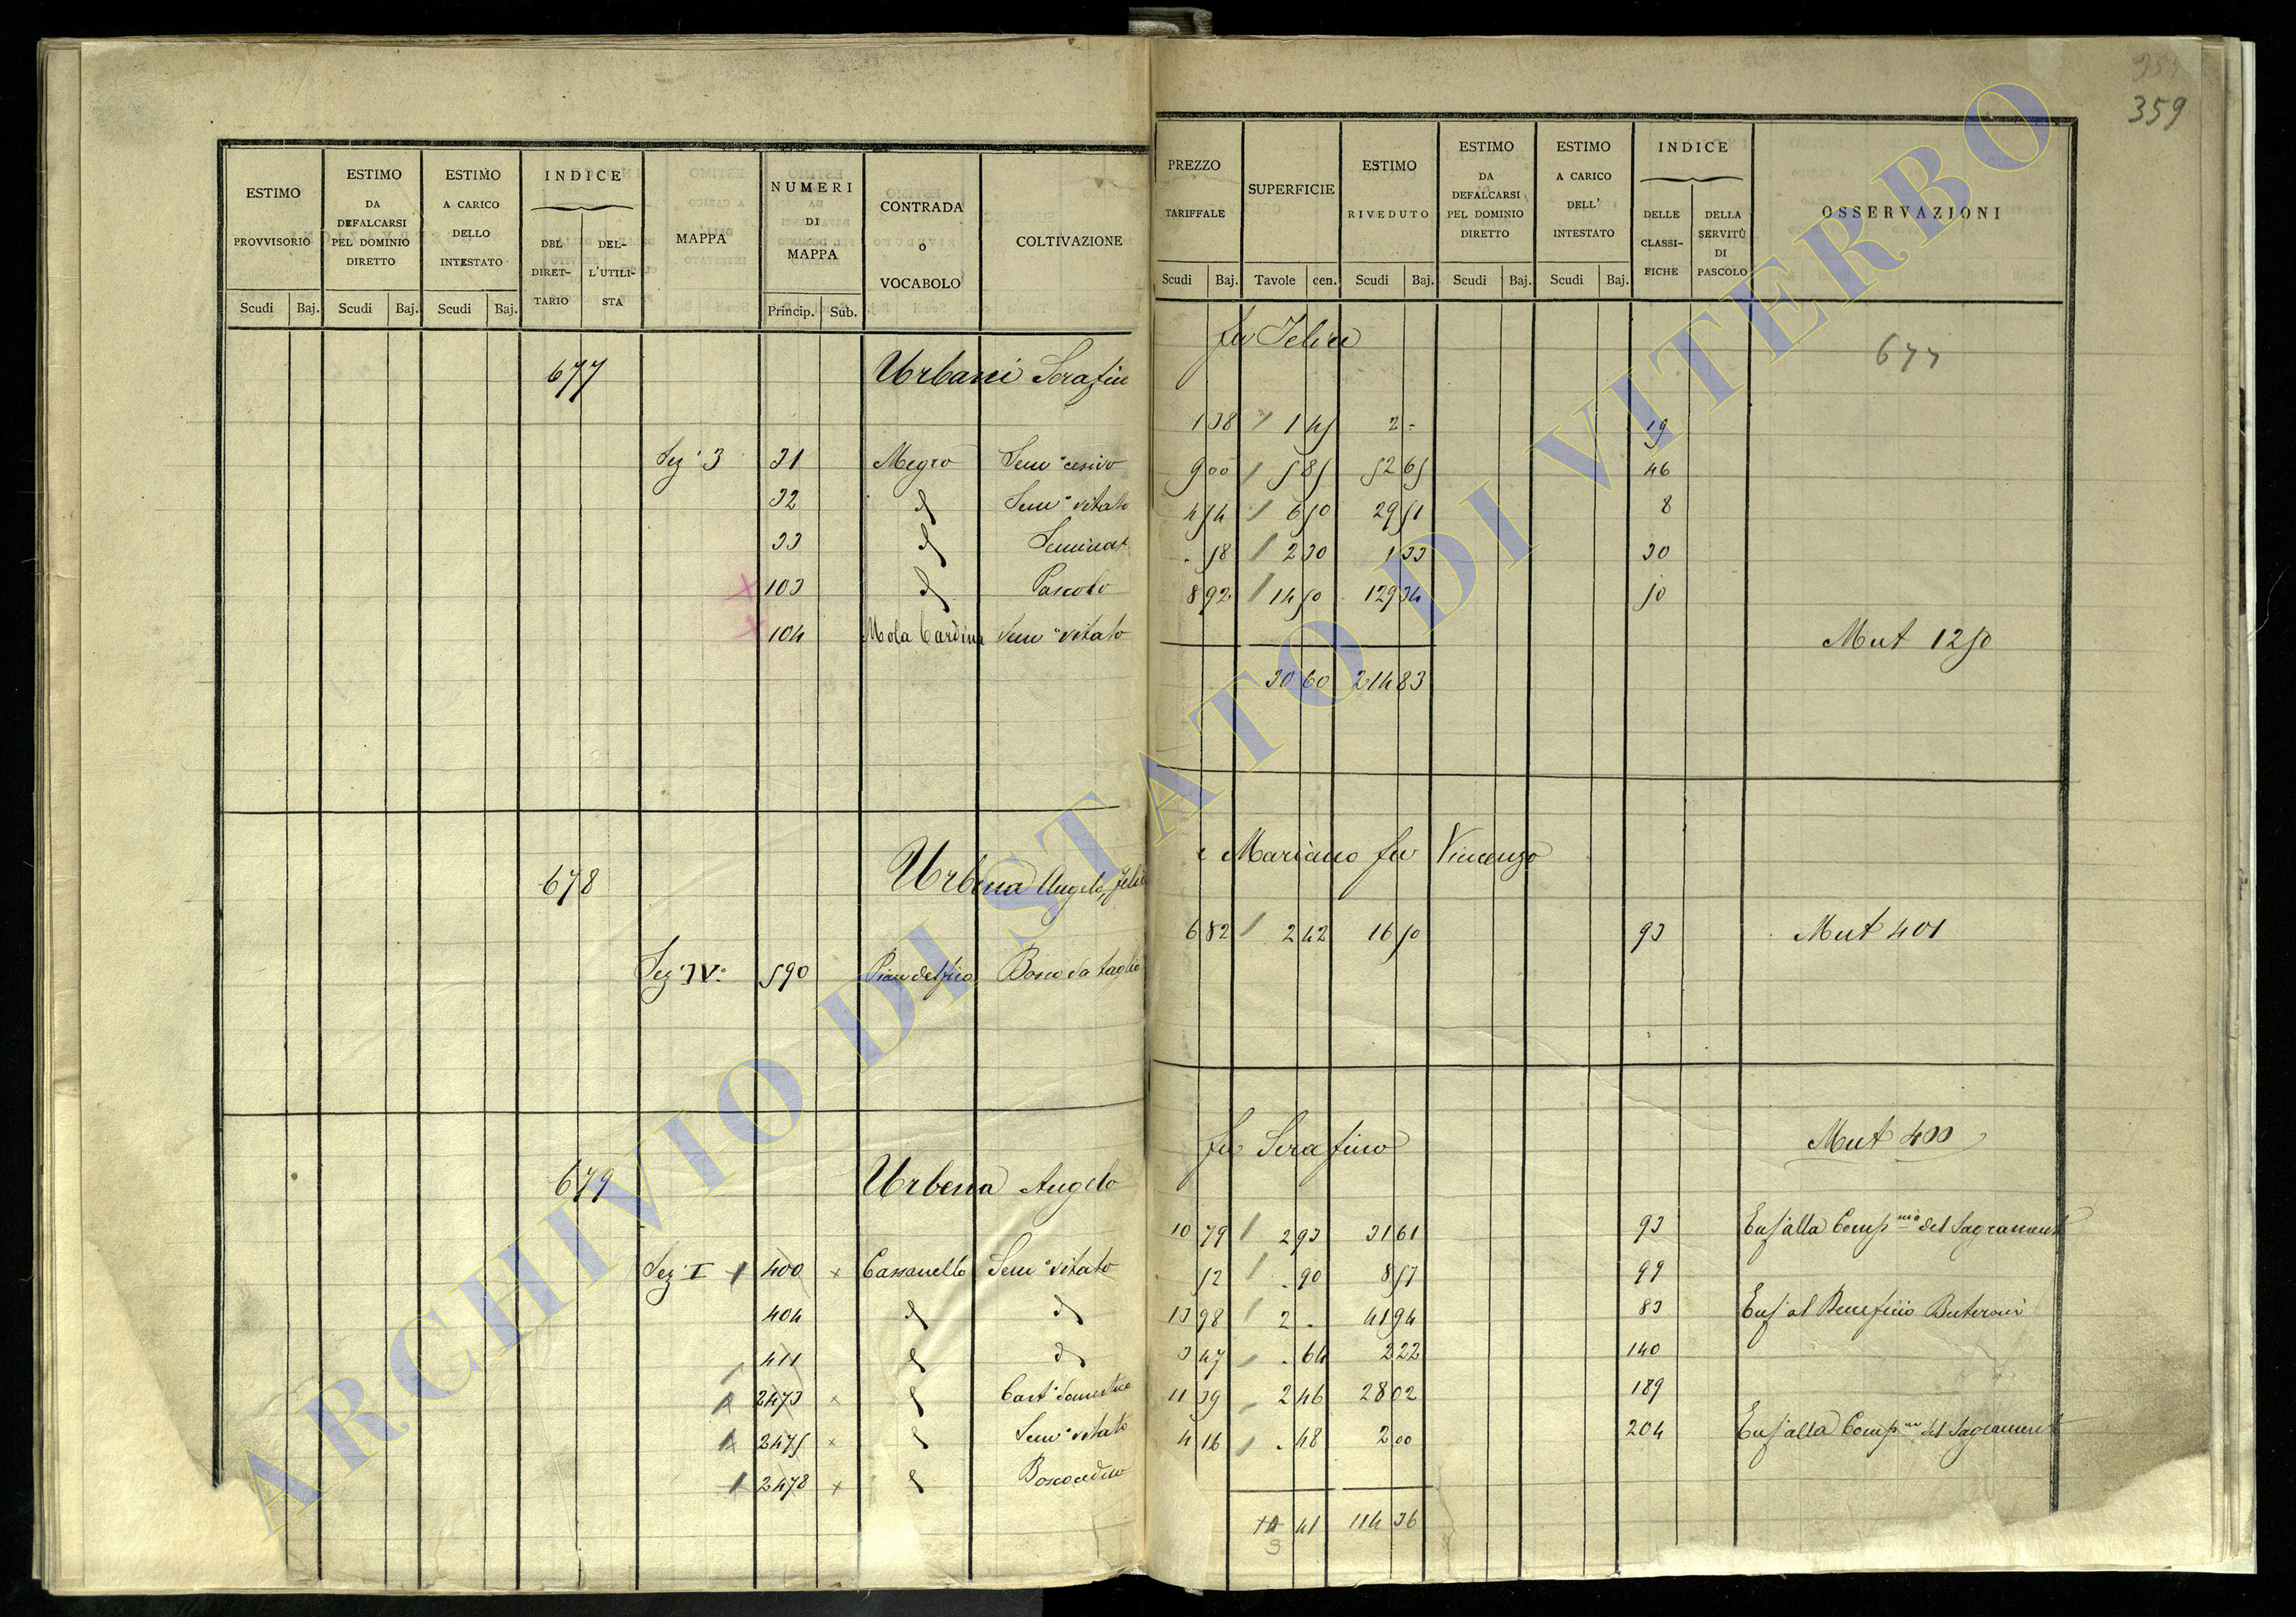 359
ESTIMO PROVVISORIO Scudi Baj.
ESTIMO DA DEFALCARSI PEL DOMINIO DIRETTO Scudi Baj.
ESTIMO A CARICO DELLO INTESTATO Scudi Baj.
INDICE DEL DIRETTARIO DELL'UTILISTA
MAPPA
NUMERI DI MAPPA Princip. Sub.
CONTRADA O VOCABOLO
COLTIVAZIONE
PREZZO TARIFFALE Scudi Baj.
SUPERFICIE Tavole cen.
ESTIMO RIVEDUTO Scudi Baj.
ESTIMO DA DEFALCARSI PEL DOMINIO DIRETTO Scudi Baj.
ESTIMO A CARICO DELL' INTESTATO Scudi Baj.
INDICE DELLE CLASSIFICHE DELLA SERVITÙ DI PASCOLO
OSSERVAZIONI
677 Urbani Serafin fu Felice 677
Sez 3 31 Megro Sem° cesivo 1 38 1 45 2 - 19
32 d Sem° vitato 9 00 5 85 52 65 46
33 d Seminat 4 54 6 50 29 51 8
103 d Pascolo . 58 2 30 1 33 30
104 Mola Cardina Sem° vitato 8 92 14 50 129 34 50
Mut 1250
30 60 214 83
678 Urbena Angelo, Felic e Mariano fu Vincenzo
Sez IV° 590 Pian del fico Bosco da taglio 6 82 2 42 16 50 93 Mut 401
679 Urbena Angelo fu Serafino Mut 400
Sez I 400 Cassanello Sem° vitato 10 79 2 93 31 61 93 Enf alla Comp del Sagrament
404 d d 52 . 90 8 57 99
411 d d 13 98 2 . 41 94 83 Enf al Beneficio Buteroni
2473 d Cast° domestico 3 47 . 64 2 22 140
2475 d Sem° vitato 11 39 2 46 28 02 189
2478 d Bosco ceduo 4 16 . 48 2 00 204 Enf alla Comp del Sagrament
41 114 36
ARCHIVIO DI STATO DI VITERBO